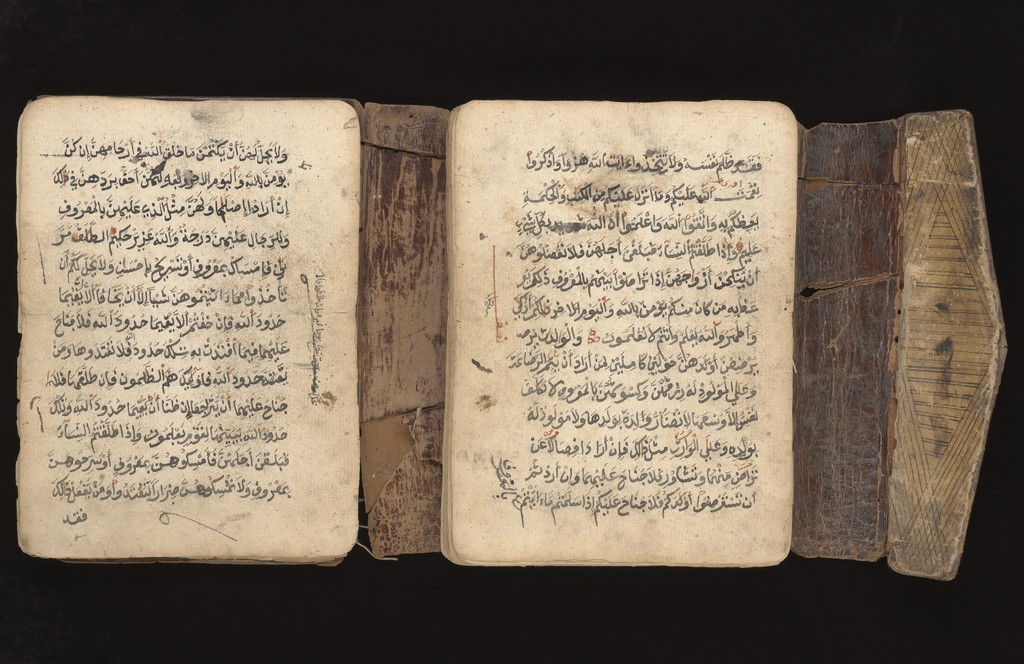 وَلَا يَحِلُّ لَهُنَّ أَنْ يَكْتُمْنَ مَا خَلَقَ اللَّهُ فِي أَرْحَامِهِنَّ إِنْ كُنَّ
يُؤْمِنَّ بِاللَّهِ وَالْيَوْمِ الْآخِرِ وَبُعُولَتُهُنَّ أَحَقُّ بِرَدِّهِنَّ فِي ذَلِكَ
إِنْ أَرَادُوا إِصْلَحًا وَلَهُنَّ مِثْلُ الَّذِي عَلَيْهِنَّ بِالْمَعْرُوفِ
وَلِلرِّجَالِ عَلَيْهِنَّ دَرَجَةٌ وَاللَّهُ عَزِيزٌ حَكِيمٌ الطَّلَقُ مَرَّ
تَنِ فَإِمْسَاكٌ بِمَعْرُوفٍ أَوْ تَسْرِيحٌ بِإِحْسَنٍ وَلَا يَحِلُّ لَكُمْ أَنْ
تَأْخُذُوا مِمَّا ءَاتَيْتُمُوهُنَّ شَيْئًا إِلَّا أَنْ يَخَافَا أَلَّا يُقِيمَا
حُدُودَ اللَّهِ فَإِنْ خِفْتُمْ أَلَّا يُقِيمَا حُدُودَ اللَّهِ فَلَا جُنَاحَ
عَلَيْهِمَا فِيمَا افْتَدَتْ بِهِ تِلْكَ حُدُودُ اللَّهِ فَلَا تَعْتَدُوهَا وَمَنْ
يَتَعَدَّ حُدُودَ اللَّهِ فَأُولَئِكَ هُمُ الظَّالِمُونَ فَإِنْ طَلَّقَهَا فَلَا
جُنَاحَ عَلَيْهِمَا أَنْ يَتَرَاجَعَا إِنْ ظَنَّا أَنْ يُقِيمَا حُدُودَ اللَّهِ وَتِلْكَ
حُدُودُ اللَّهِ يُبَيِّنُهَا لِقَوْمٍ يَعْلَمُونَ وَإِذَا طَلَّقْتُمُ النِّسَاءَ
فَبَلَغْنَ أَجَلَهُنَّ فَأَمْسِكُوهُنَّ بِمَعْرُوفٍ أَوْ سَرِّحُوهُنَّ
بِمَعْرُوفٍ وَلَا تُمْسِكُوهُنَّ ضِرَارًا لِتَعْتَدُوا وَمَنْ يَفْعَلْ ذَلِكَ
فقد
فَقَدْ ظَلَمَ نَفْسَهُ وَلَا تَتَّخِذُوا ءَايَاتِ اللَّهِ هُزُوًا وَاذْكُرُوا
نِعْمَتَ اللَّهِ عَلَيْكُمْ وَمَا أَنْزَلَ عَلَيْكُمْ مِنَ الْكِتَبِ وَالْحِكْمَةِ
يَعِظُكُمْ بِهِ وَاتَّقُوا اللَّهَ وَاعْلَمُوا أَنَّ اللَّهَ بِكُلِّ شَيْءٍ
عَلِيمٌ وَإِذَا طَلَّقْتُمُ النِّسَاءَ فَبَلَغْنَ أَجَلَهُنَّ فَلَا تَعْضُلُوهُنَّ
أَنْ يَنْكِحْنَ أَزْوَاجَهُنَّ إِذَا تَرَاضَوْا بَيْنَهُمْ بِالْمَعْرُوفِ ذَلِكَ يُو
عَظُ بِهِ مَنْ كَانَ مِنْكُمْ يُؤْمِنُ بِاللَّهِ وَالْيَوْمِ الْآخِرِ ذَلِكُمْ أَزْكَى
وَأَطْهَرُ وَاللَّهُ يَعْلَمُ وَأَنْتُمْ لَا تَعْلَمُونَ وَالْوَالِدَتُ يُرْضِعْ
حَوْلَيْنِ كَامِلَيْنِ لِمَنْ أَرَادَ أَنْ يُتِمَّ الرَّضَاعَةَ
وَعَلَى الْمَوْلُودِ لَهُ رِزْقُهُنَّ وَكِسْوَتُهُنَّ بِالْمَعْرُوفِ لَا تُكَلَّفُ
نَفْسٌ إِلَّا وُسْعَهَا لَا تُضَارَّ وَالِدَةٌ بِوَلَدِهَا وَلَا مَوْلُودٌ لَهُ
بِوَلَدِهِ وَعَلَى الْوَارِثِ مِثْلُ ذَلِكَ فَإِنْ أَرَادَا فِصَالًا عَنْ
تَرَاضٍ مِنْهُمَا وَتَشَاوُرٍ فَلَا جُنَاحَ عَلَيْهِمَا وَإِنْ أَرَدْتُمْ
أَنْ تَسْتَرْضِعُوا أَوْلَدَكُمْ فَلَا جُنَاحَ عَلَيْكُمْ إِذَا سَلَّمْتُمْ مَا ءَاتَيْتُمْ
بالمعروف